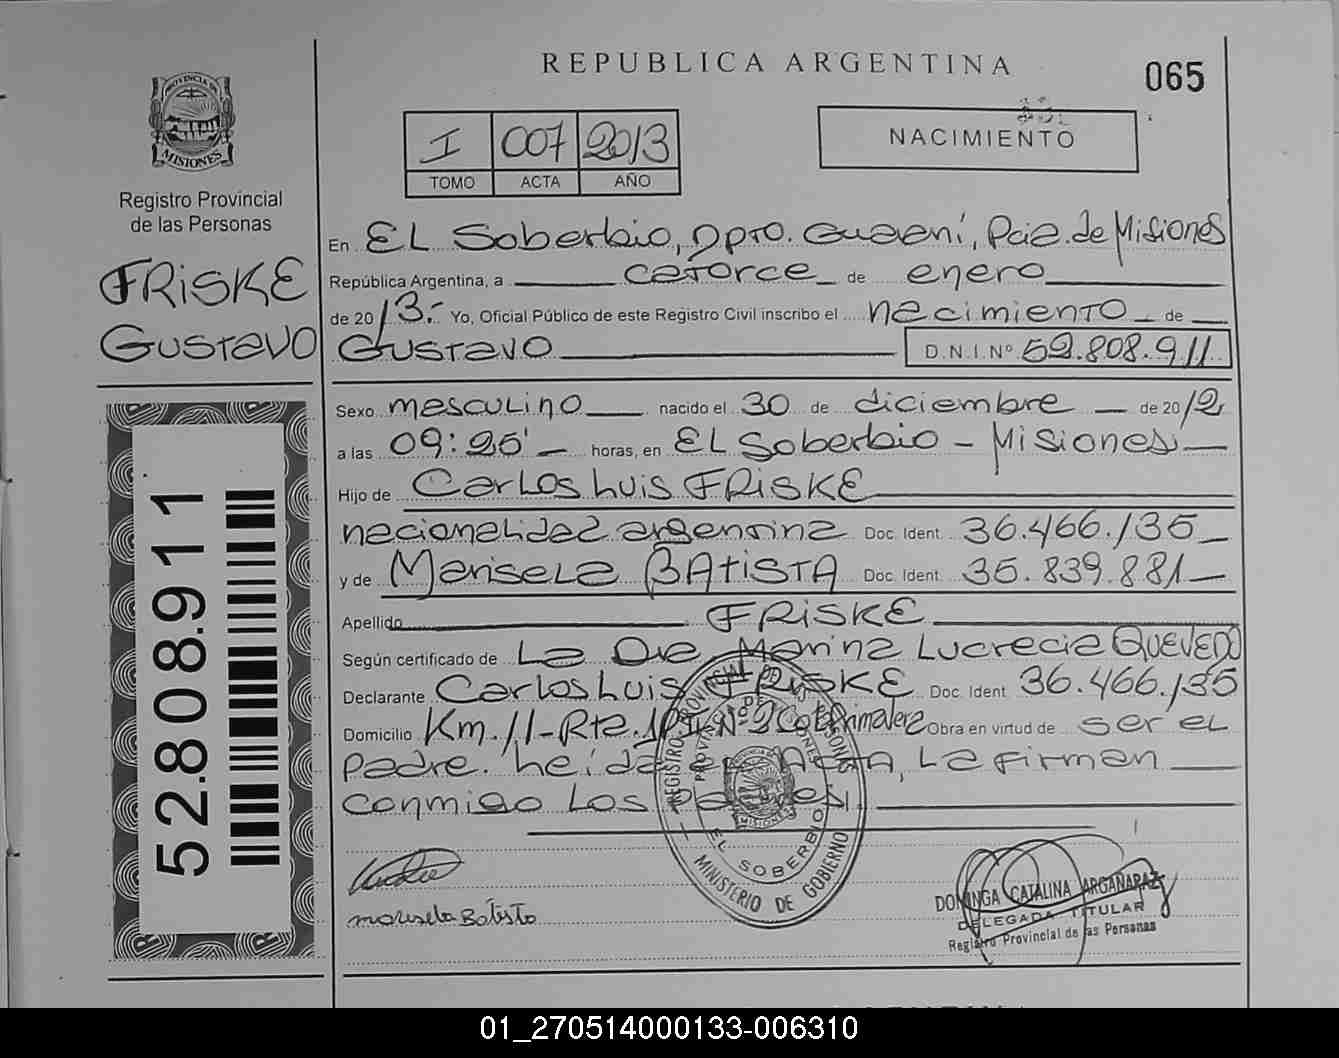 REPUBLICA ARGENTINA
065
PROVINCIA DE
MISIONES
Registro Provincial
de las Personas
FRISKE
GUSTAVO
52.808.911
I 007 2013
TOMO ACTA AÑO
NACIMIENTO
En EL Soberbio, Dpto. Guaraní, Pcia. de Misiones
República Argentina, a catorce de enero
de 2013.- Yo, Oficial Público de este Registro Civil inscribo el nacimiento de
GUSTAVO D.N.I. Nº 52.808.911
Sexo masculino nacido el 30 de diciembre de 2012
a las 09:25' horas, en EL Soberbio - Misiones
Hijo de Carlos Luis FRISKE
nacionalidad argentina Doc. Ident. 36.466.135
y de Marisela BATISTA Doc. Ident. 35.839.881
Apellido FRISKE
Según certificado de La Dra. Marina Lucrecia QUEVEDO
Declarante Carlos Luis FRISKE Doc. Ident. 36.466.135
Domicilio Km. 11 - Rta. Nº 2 Col. Primavera Obra en virtud de ser el
padre. Leída el Acta, La firman
conmigo Los Padres.
REGISTRO PROVINCIAL DE LAS PERSONAS
PROVINCIA DE MISIONES
EL SOBERBIO
MINISTERIO DE GOBIERNO
marisela Batista
DOMINGA CATALINA ARGAÑARAZ
DELEGADA TITULAR
Registro Provincial de las Personas
01_270514000133-006310